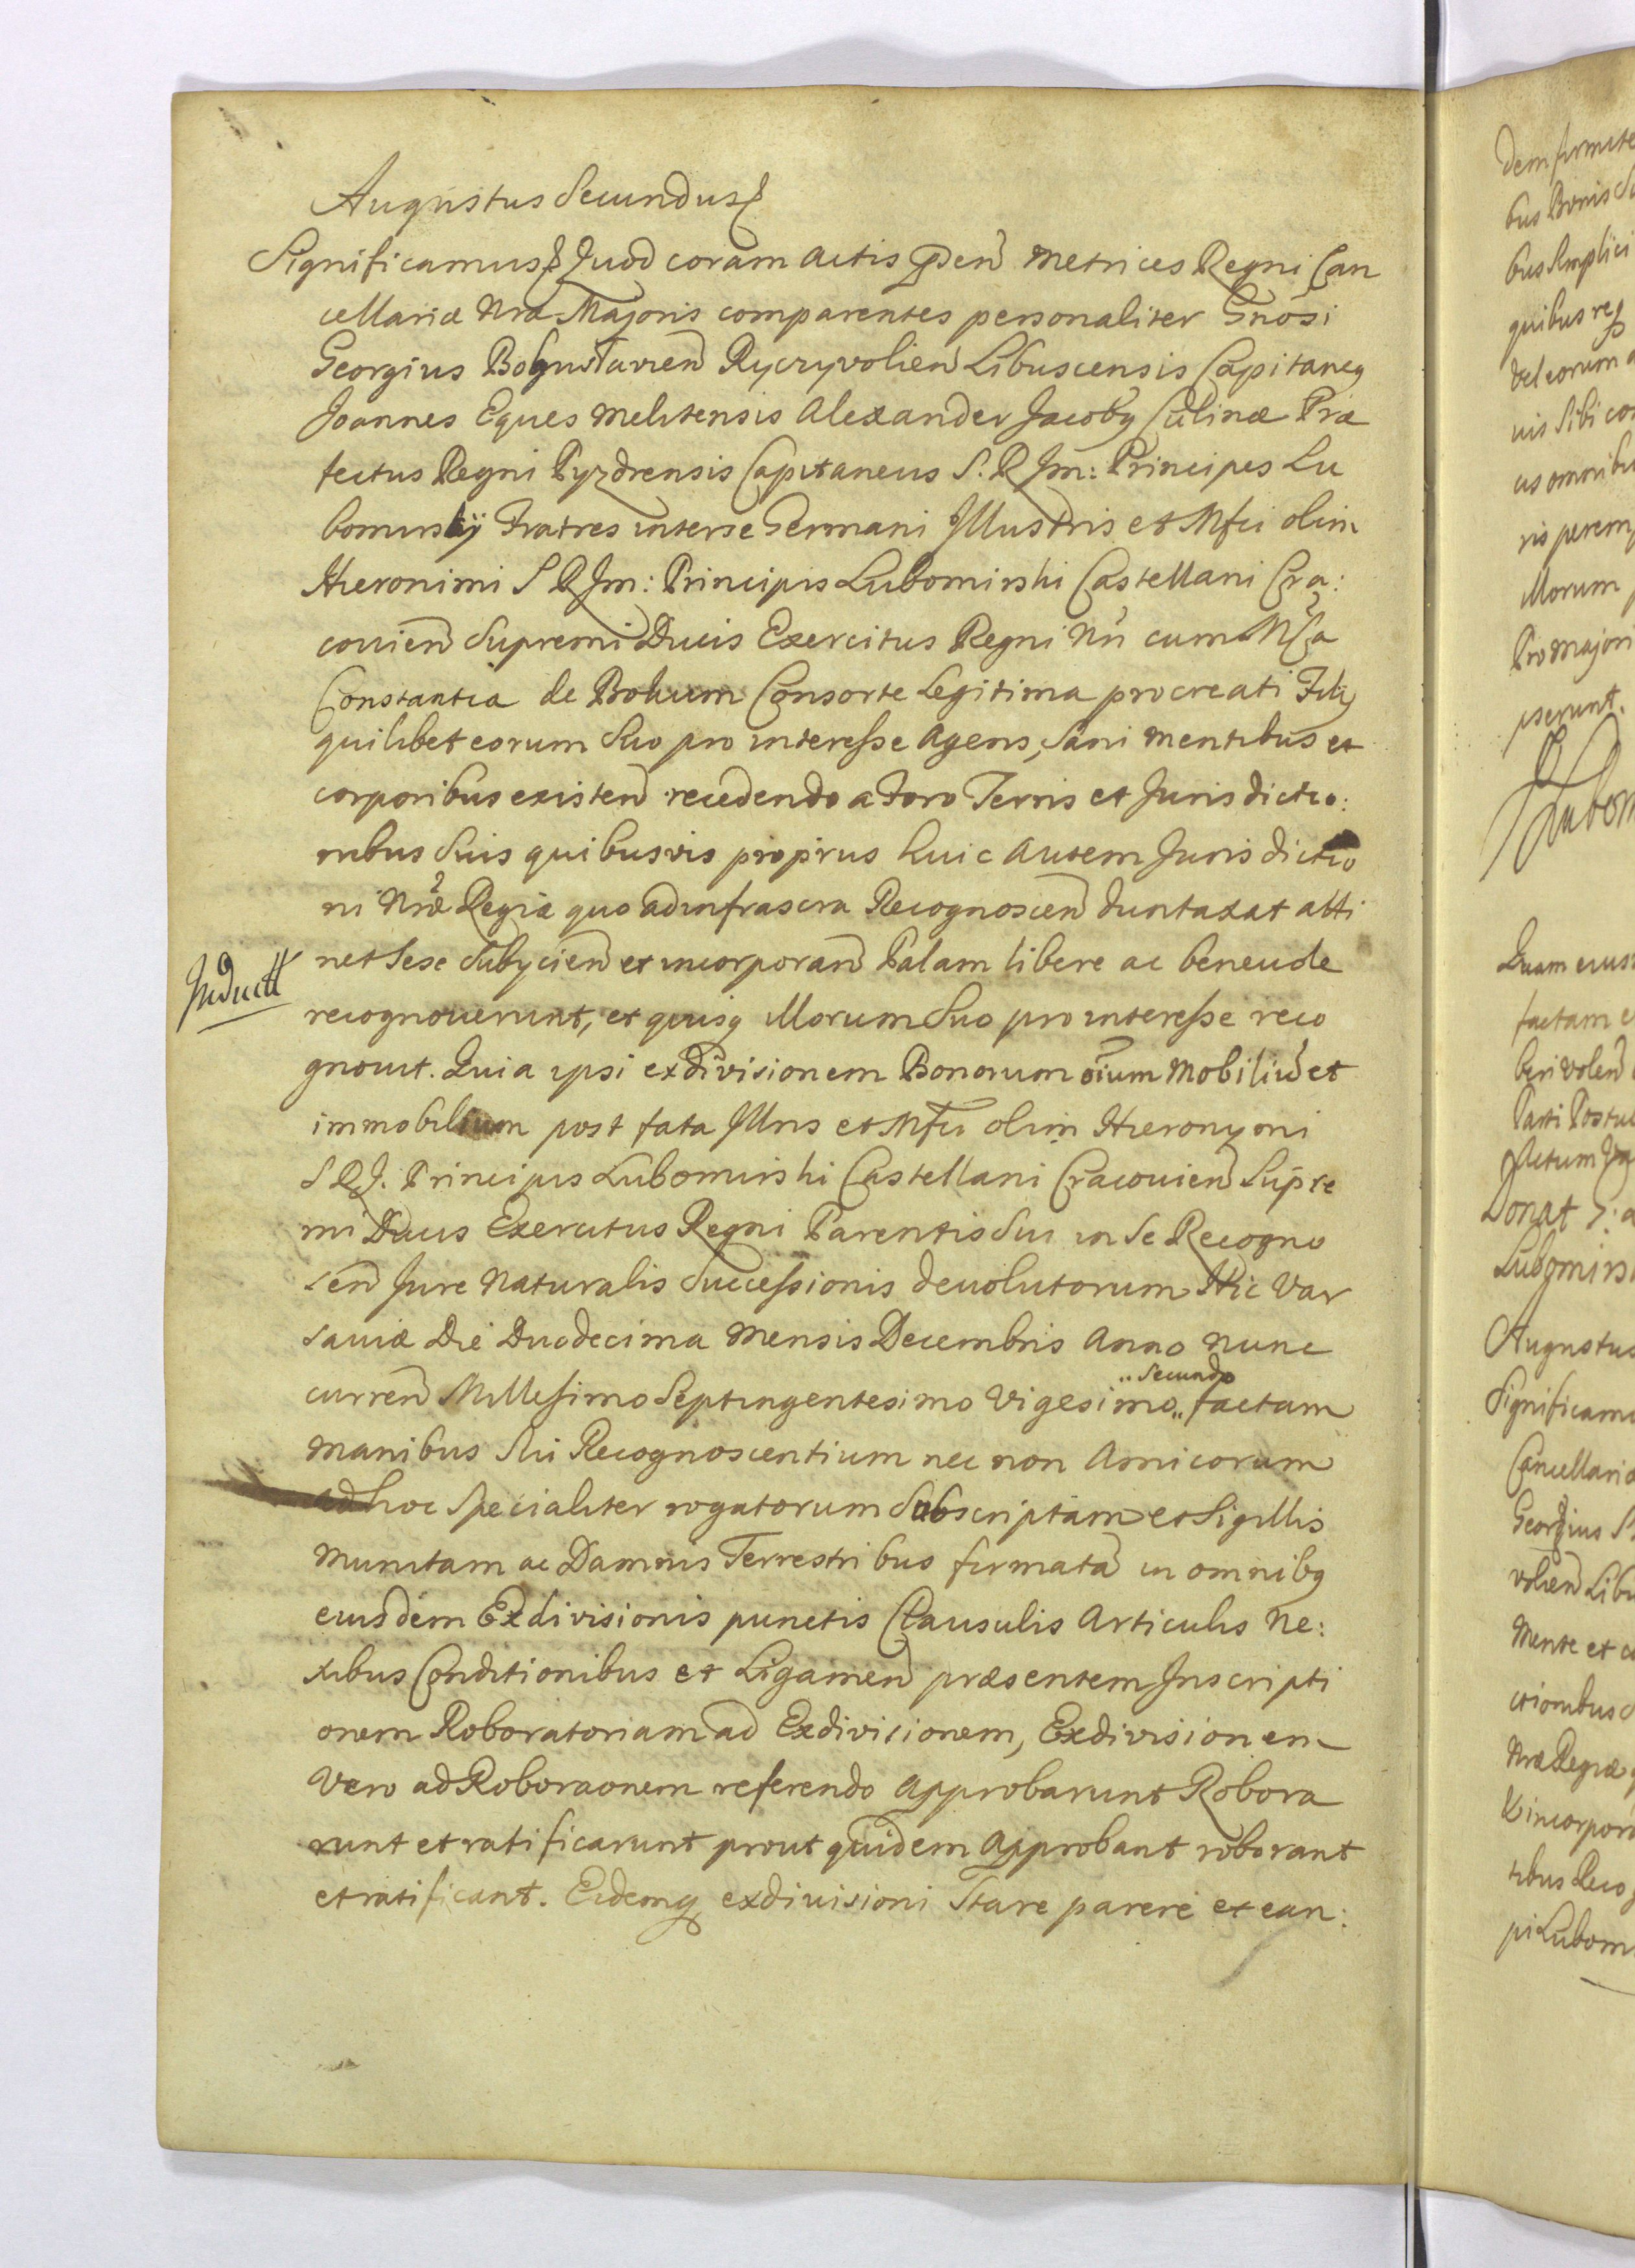 Augustus Secundus
Significamus Quod coram Actis Pñ Metrices Regni Can
cellariæ Nræ Majoris comparentes personaliter Gnosi
Georgius Boguslavien Ryczyvolien Libuscensis Capitaneq
Joannes Eques Melitensis Alexander Jacobq Culinæ Præ
fectus Regni Pyzdrensis Capitaneus S. R Jm: Principes Lu
bomirskÿ Fratres interse Germani Jllustris et Mfci olim
Hieronimi S R Jm: Principis Lubomirski Castellani Cra:
covien Supremi Ducis Exercitus Regni Nri cum Mca
Constantia de Bokum Consorte Legitima procreati Filij
quilibet eorum Suo pro interesse Agens, Sani mentibus et
corporibus existen recedendo a Foro Terris et Jurisdictio:
nibus Suis quibusvis proprius huic autem Jurisdictio
ni Nræ Regiæ quo ad infrascra Recognoscen duntaxat atti
net Sese Subijcien et incorporan Palam libere ac benevole
Jnducti
recognoverunt, et quisq illorum Suo pro interesse reco
gnovit. Quia ipsi exdivisionem Bonorum oium Mobiliu et
immobilium post fata Jllris et Mfci olim Hieronymi
S R J. Principis Lubomirski Castellani Cracovien Supre
mi Ducis Exercitus Regni Parentis Sui in Se Recogno
scen Jure Naturalis Successionis devolutorum Hic Var
saviæ Die Duodecima Mensis Decembris Anno nunc
curren Millesimo Septingentesimo Vigesimo,, ,,Secundo factam
manibus Sui Recognoscentium nec non Amicorum
ad hoc Specialiter rogatorum Subscriptam et Sigillis
munitam ac Damnis Terrestribus firmata in omnibq
eiusdem Exdivisionis punctis Clausulis Articulis Ne:
xibus Conditionibus et Ligamen præsentem Jnscripti
onem Roboratoriam ad Exdivisionem, Exdivisionem
Vero ad Roboraonem referendo Approbarunt Robora
runt et ratificarunt prout quidem Approbant roborant
et ratificant. Eidemq exdivisioni Stare parere et ean: